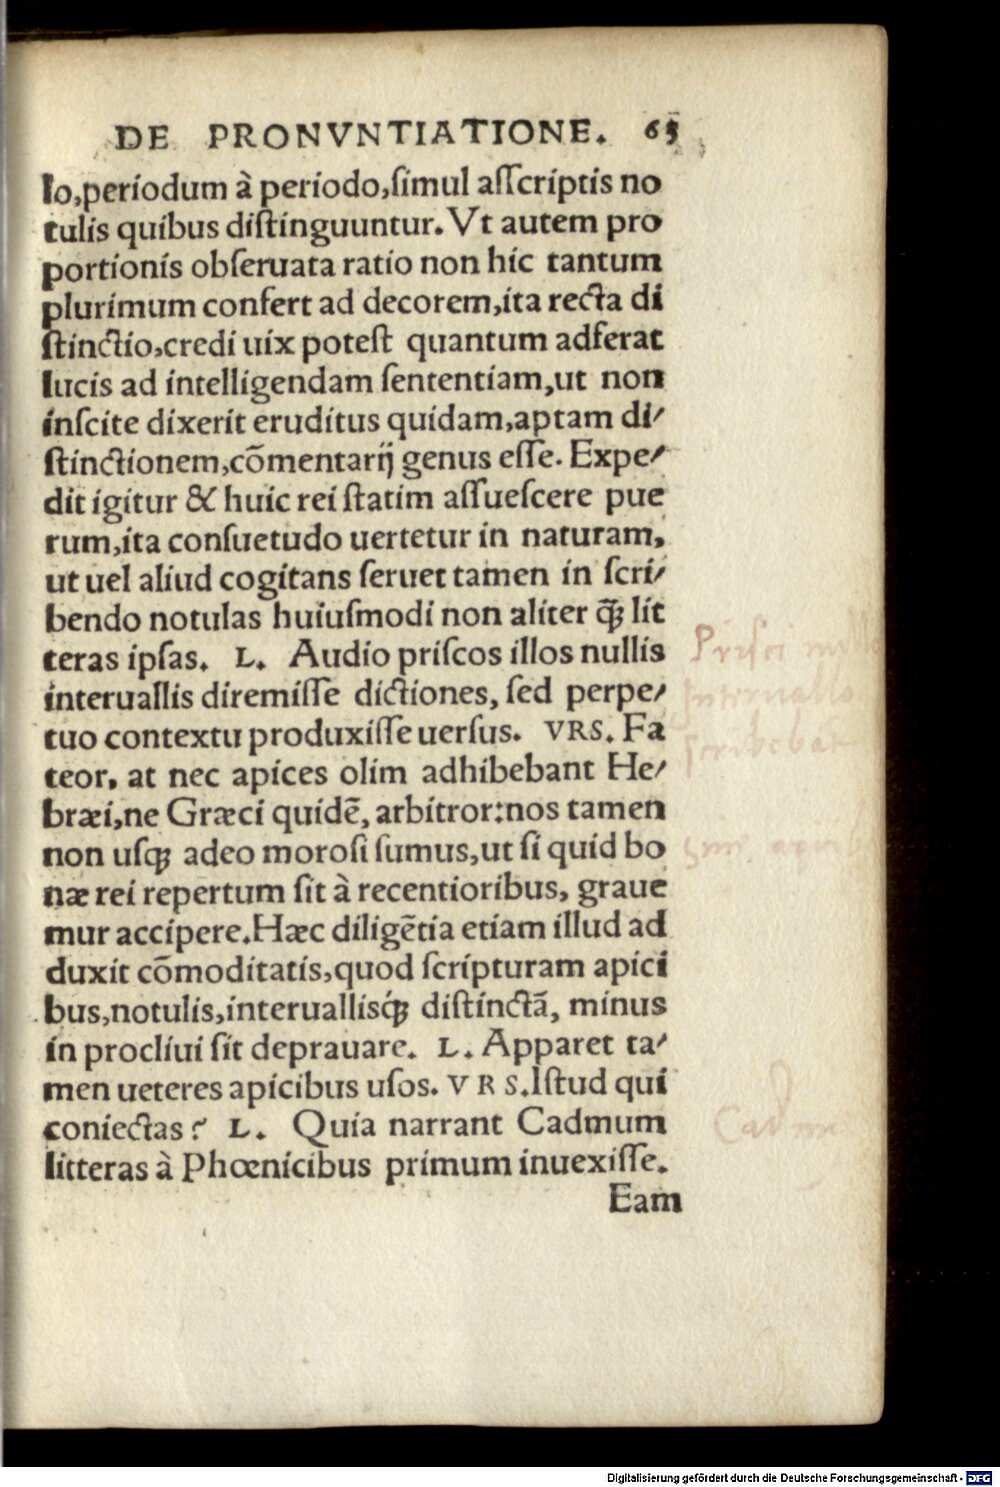 DE PRONVNTIATIONE. 65
lo,periodum à periodo,ſimul aſſcriptis no
tulis quibus diſtinguuntur. Vt autem pro
portionis obſeruata ratio non hic tantum
plurimum confert ad decorem,ita recta di
ſtinctio,credi uix poteſt quantum adferat
lucis ad intelligendam ſententiam,ut non
inſcite dixerit eruditus quidam,aptam di⸗
ſtinctionem,cõmentarij genus eſſe. Expe⸗
dit igitur & huic rei ſtatim aſſueſcere pue
rum,ita conſuetudo uertetur in naturam,
ut uel aliud cogitans ſeruet tamen in ſcri⸗
bendo notulas huiuſmodi non aliter q̃ꝫ lit
teras ipſas. L. Audio priſcos illos nullis
interuallis diremiſſe dictiones, ſed perpe⸗
tuo contextu produxiſſe uerſus. VRS. Fa
teor, at nec apices olim adhibebant He⸗
bræi,ne Græci quidẽ, arbitror:nos tamen
non uſqꝫ adeo moroſi ſumus,ut ſi quid bo
næ rei repertum ſit à recentioribus, graue
mur accipere.Hæc diligẽtia etiam illud ad
duxit cõmoditatis,quod ſcripturam apici
bus,notulis,interuallisq́ꝫ diſtinctã, minus
in procliui ſit deprauare. L. Apparet ta⸗
men ueteres apicibus uſos. VRS.Iſtud qui
coniectas? L. Quia narrant Cadmum
litteras à Phœnicibus primum inuexiſſe.
Eam
Priſci
Interuallo
ſcribebāt
Digitalisierung gefördert durch die Deutsche Forschungsgemeinschaft - DFG